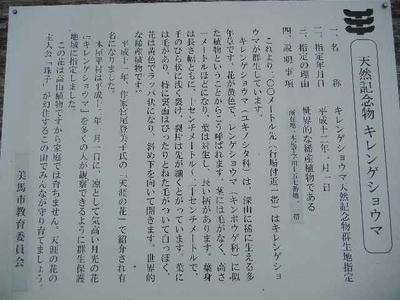 天然記念物 キレンゲショウマ
一、名称 キレンゲショウマ天然記念物群生地指定
二、指定年月日 平成十二年一月一日
三、指定の理由 世界的な稀産植物である
四、説明事項
これより二〇〇メートル先(行場付近一帯)はキレンゲショ
ウマが群生しています。
キレンゲショウマ(ユキノシタ科)は、深山に稀に生える多
年草です。花が黄色で、レンゲショウマ(キンポウゲ科)に似
た植物ということからこう呼ばれます。茎には毛がなく、高さ
一メートルほどになり、葉は対生し、長い柄があります。葉身
は長さ幅ともに、
手のひら状に浅く裂け、裂片は先が細くとがっています。葉に
は毛があり、特に裏面はぴったりとねた毛がついて白っぽく、
花は黄色でラッパ状になり、斜め下を向いて開きます。世界的
平成十一年、作家宮尾登美子氏の「天涯の花」で紹介され有
名になりました。
木屋平村は平成十二年一月一日に、凛として気高い月光の花
「キレンゲショウマ」を多くの人が観察できるように群生保護
地域に指定しました。
この花は高山植物ですから家庭では育ちません。天涯の花の
主人公「珠子」が幻住するこの山でみんなが守り育てましょう。
美馬市教育委員会